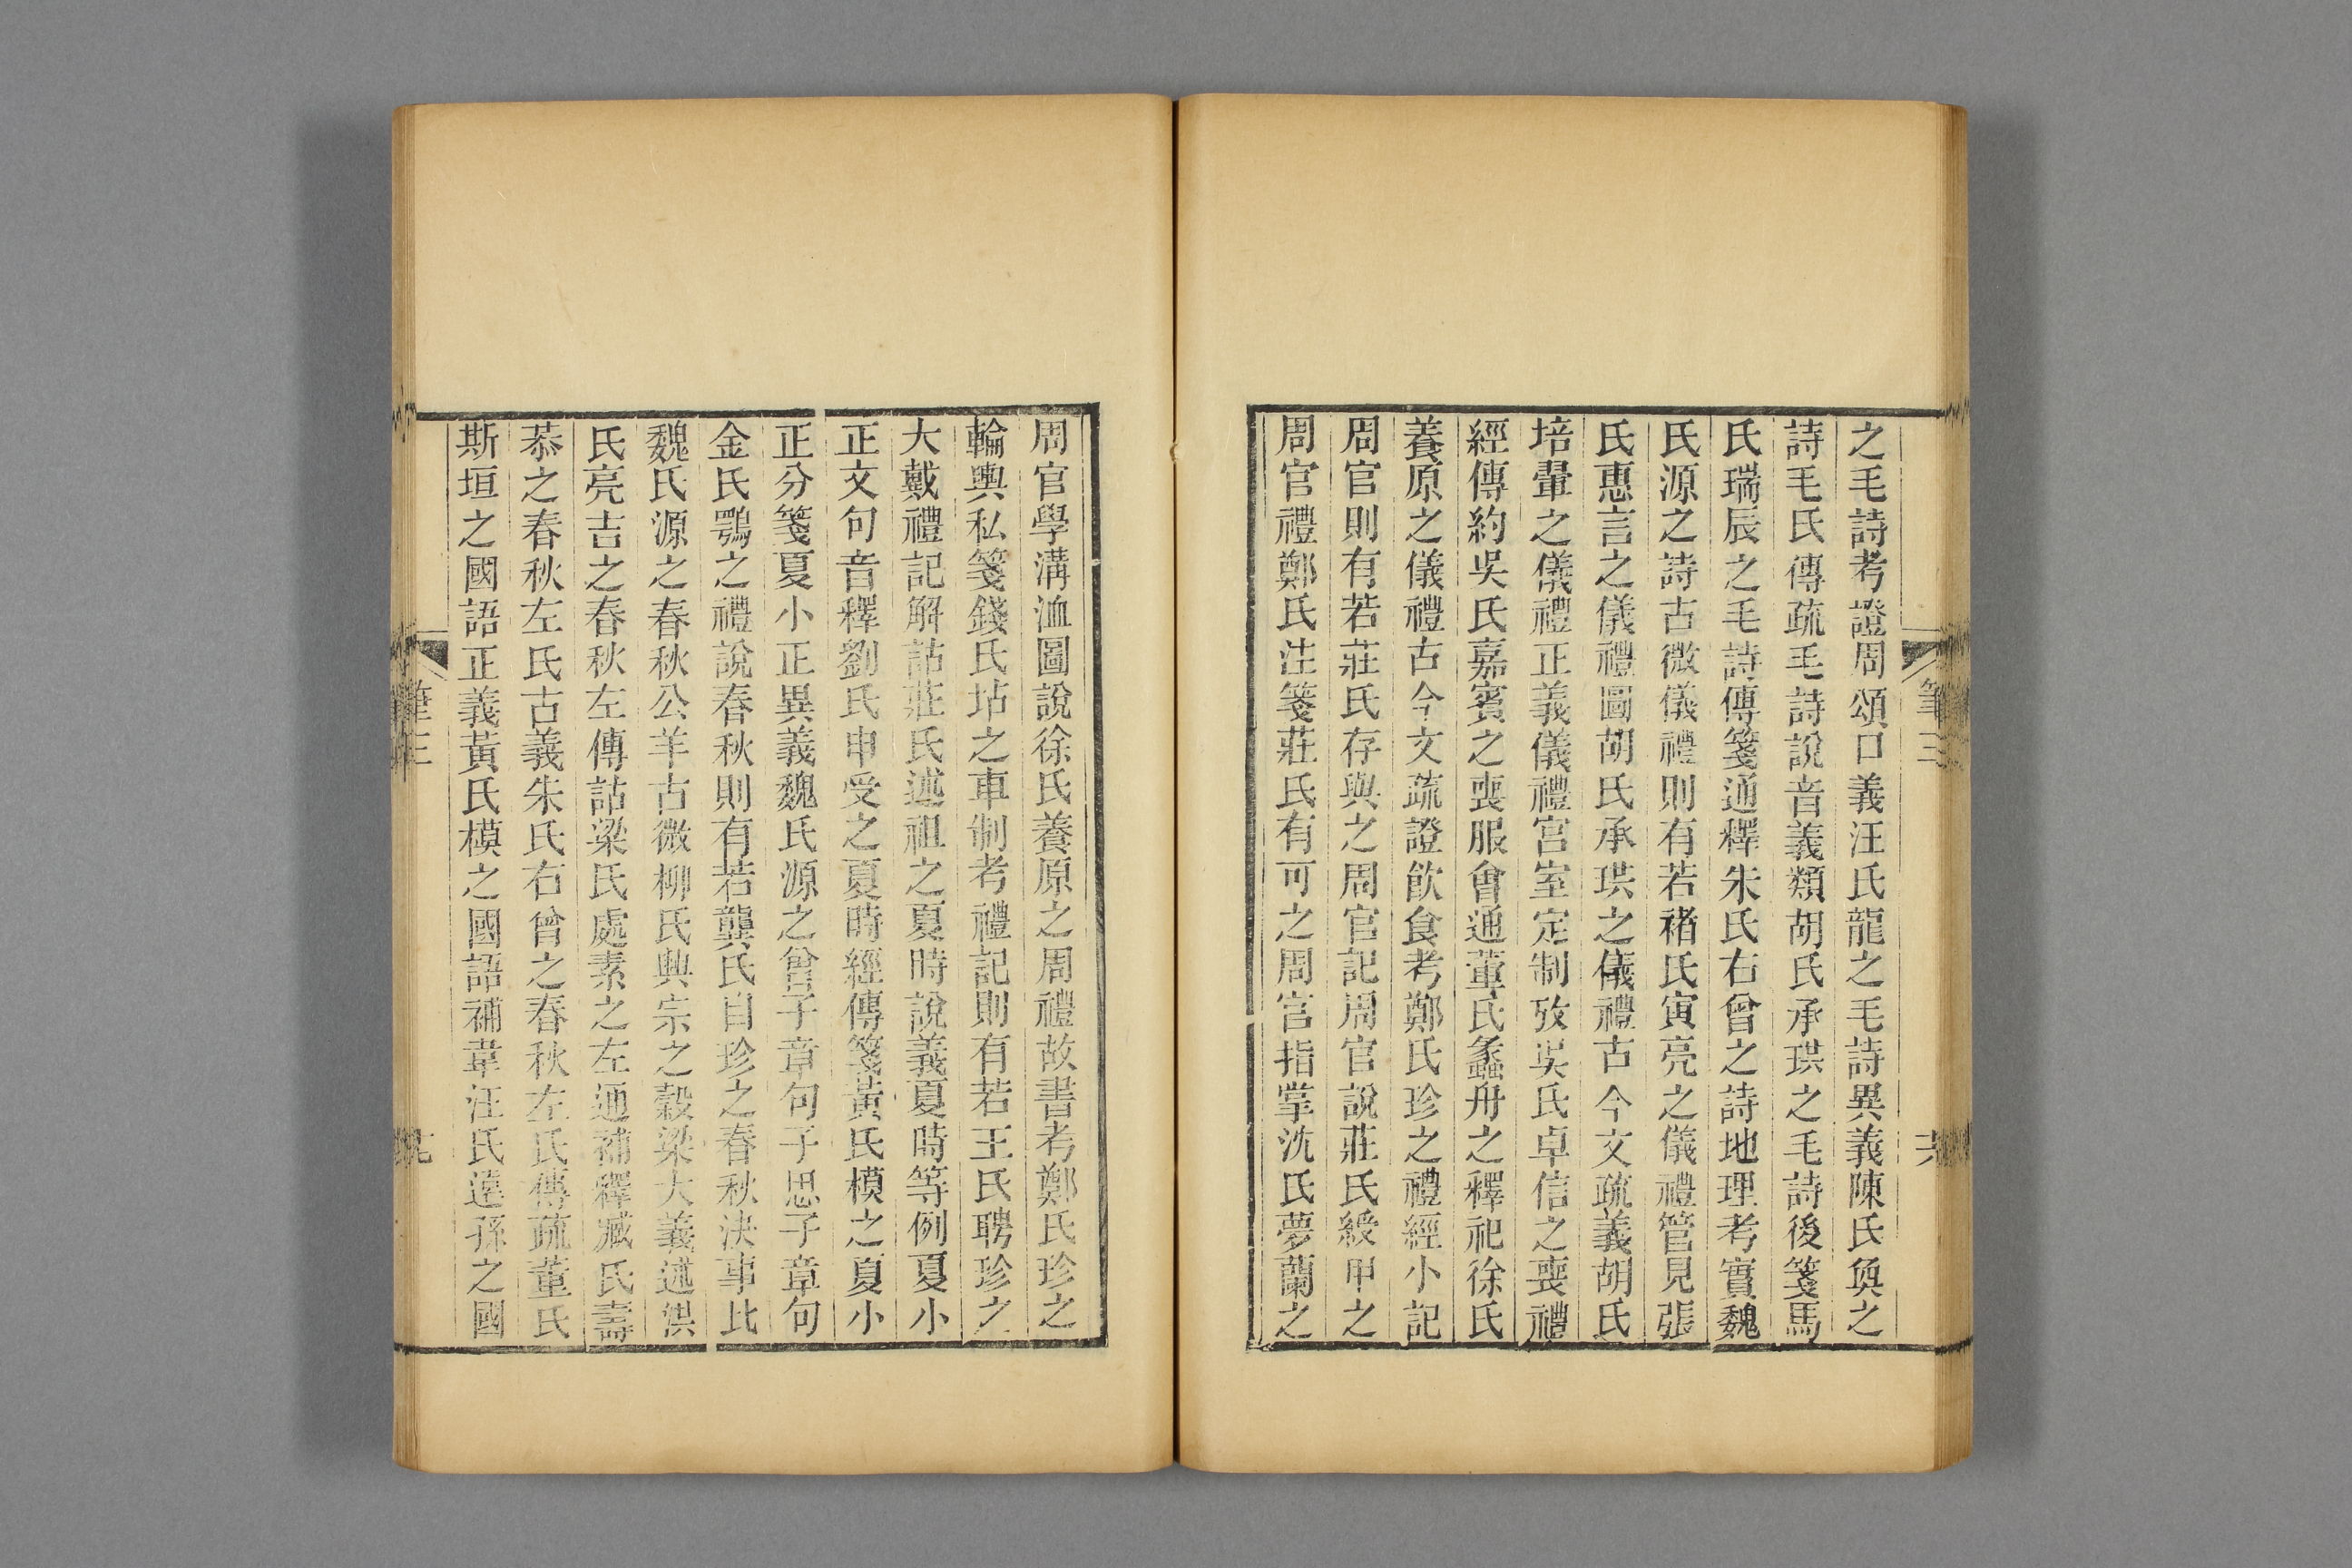 之毛詩考證周頌口義汪氏龍之毛詩異義陳氏奐之
詩毛氏傳疏毛詩說音義類胡氏承珙之毛詩後箋馬
氏瑞辰之毛詩傳箋通釋朱氏右曾之詩地理考實魏
氏源之詩古微儀禮則有若褚氏寅亮之儀禮管見張
氏惠言之儀禮圖胡氏承珙之儀禮古今文疏義胡氏
培翬之儀禮正義儀禮宮室定制攷吳氏卓信之喪禮
經傳約吳氏嘉賓之喪服會通董氏蠡舟之釋祀徐氏
養原之儀禮古今文疏證飲食考鄭氏珍之禮經小記
周官則有若莊氏存與之周官記周官說莊氏綬甲之
周官禮鄭氏注箋莊氏有可之周官指掌沈氏夢蘭之
筆三
六
周官學溝洫圖說徐氏養原之周禮故書考鄭氏珍之
輪輿私箋錢氏坫之車制考禮記則有若王氏聘珍之
大戴禮記解詁莊氏述祖之夏時說義夏時等例夏小
正文句音釋劉氏申受之夏時經傳箋黃氏模之夏小
正分箋夏小正異義魏氏源之曾子章句子思子章句
金氏鶚之禮說春秋則有若龔氏自珍之春秋決事比
魏氏源之春秋公羊古微柳氏興宗之穀梁大義述洪
氏亮吉之春秋左傳詁梁氏處素之左通補釋臧氏壽
恭之春秋左氏古義朱氏右曾之春秋左氏傳疏董氏
斯垣之國語正義黃氏模之國語補韋汪氏遠孫之國
筆三